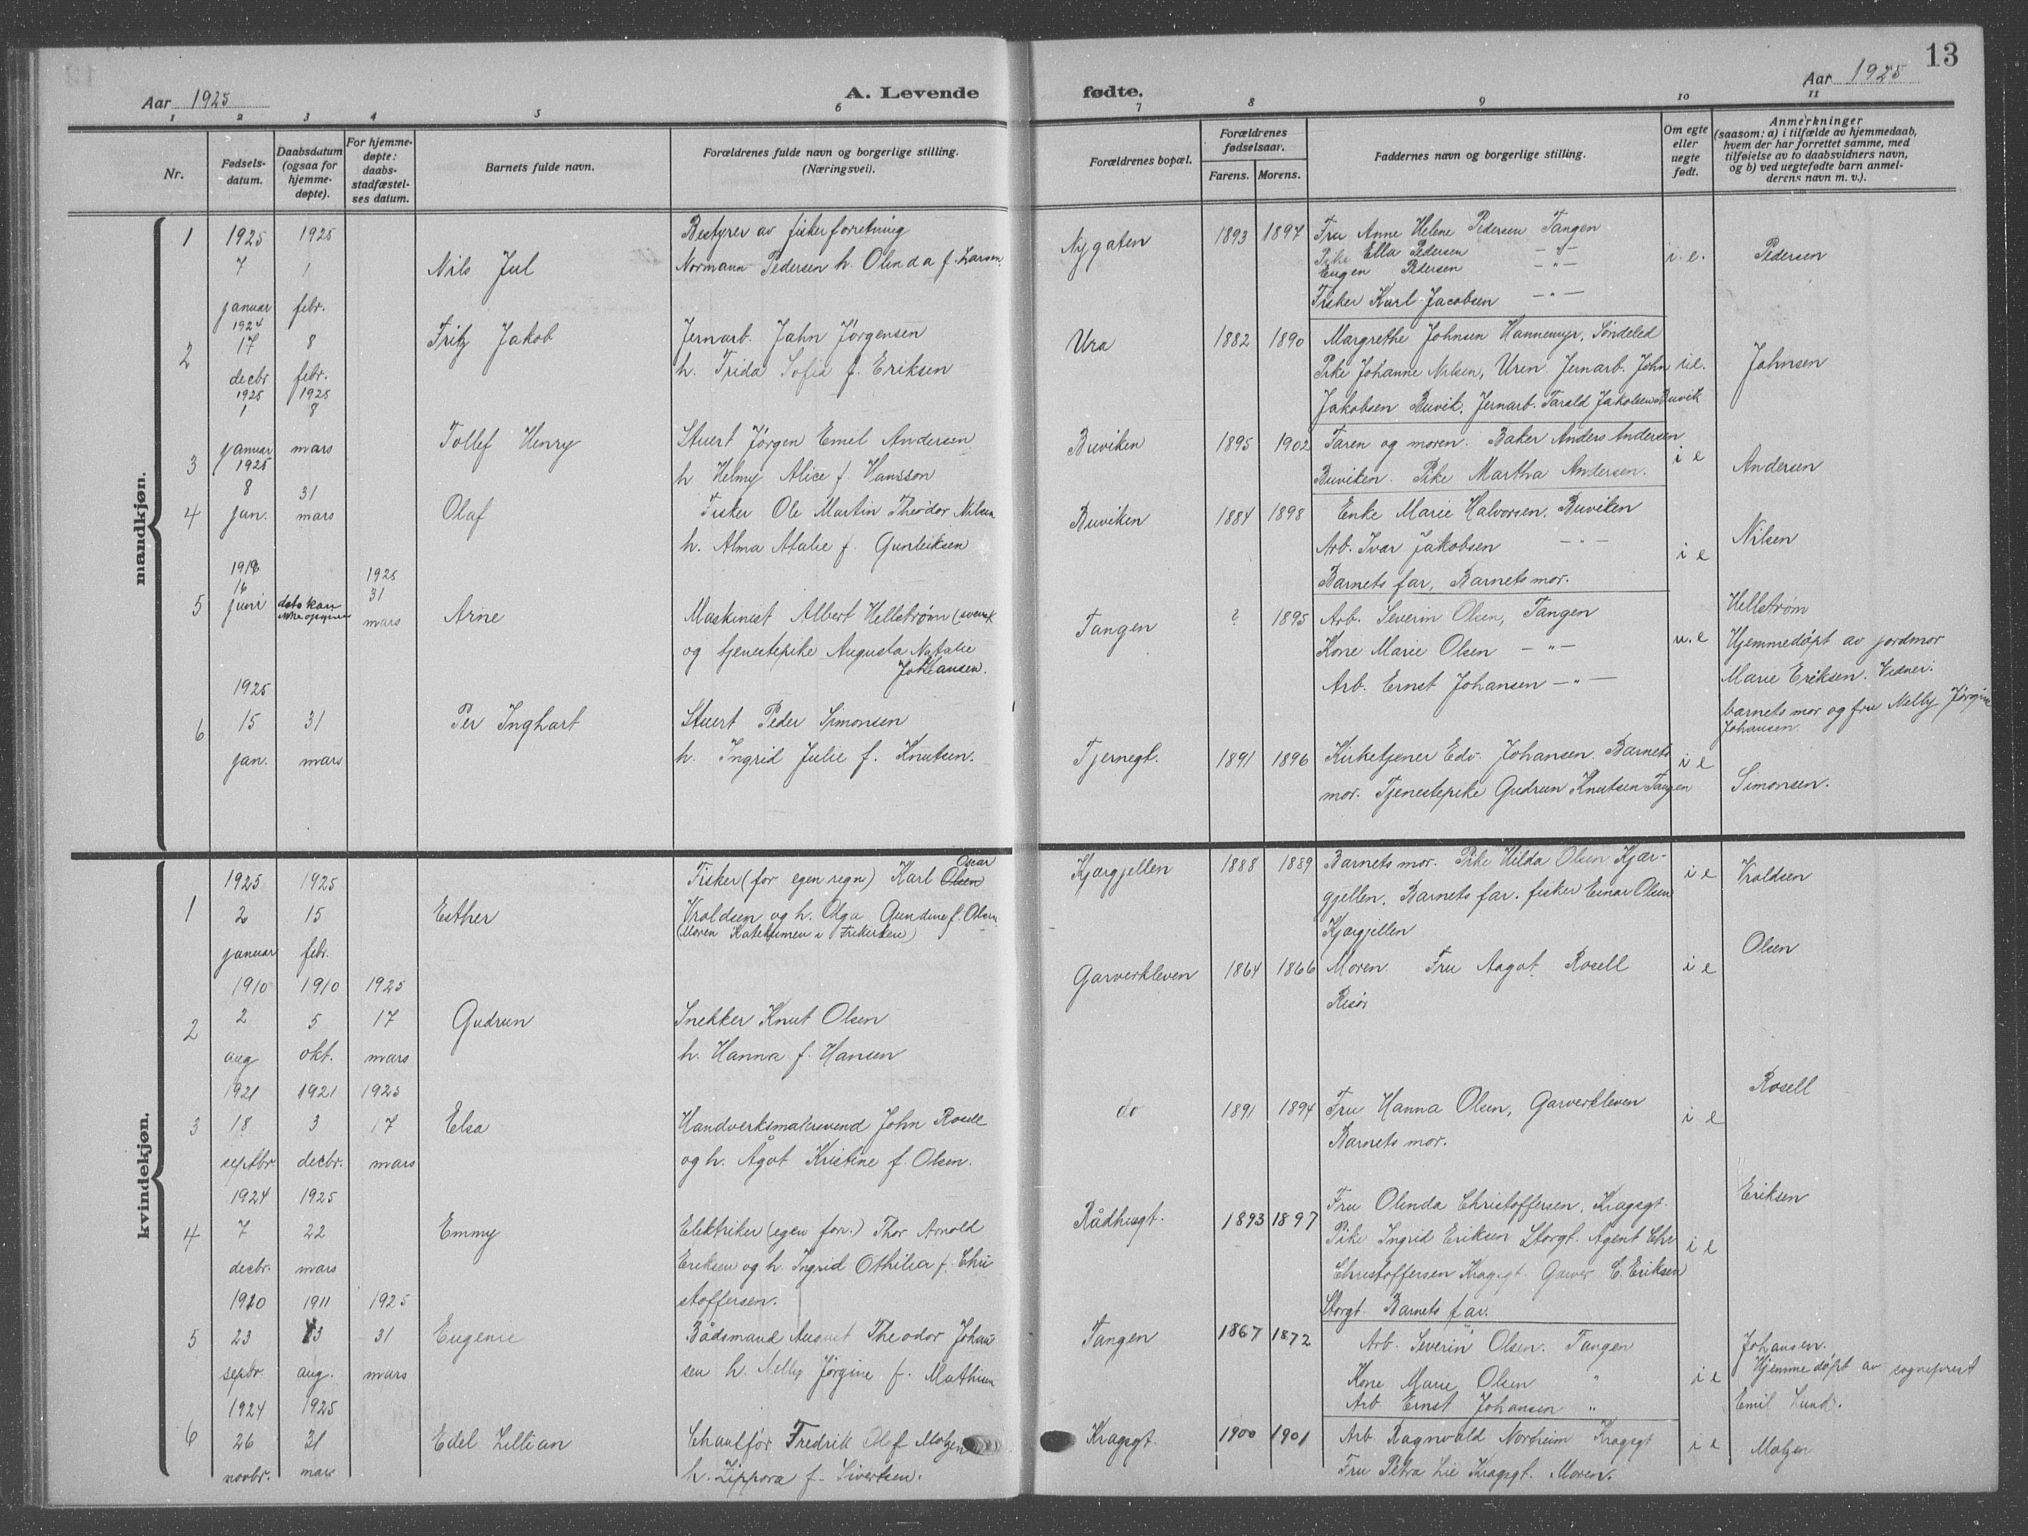 13
Aar 1925
A. Levende fødte.
Aar 1925
1 2 3 4 5 6 7 8 9 10 11
Nr.
Fødsels-
datum.
Daabsdatum
(ogsaa for
hjemme-
døpte).
For hjemme-
døpte:
daabs-
stadfæstel-
ses datum.
Barnets fulde navn.
Forældrenes fulde navn og borgerlige stilling.
(Næringsvei).
Forældrenes bopæl.
Forældrenes
fødselsaar.
Farens. Morens.
Faddernes navn og borgerlige stilling.
Om egte
eller
uegte
født.
Anmerkninger
(saasom: a) i tilfælde av hjemmedaab,
hvem der har forrettet samme, med
tilføielse av to daabsvidners navn,
og b) ved uegtefødte barn anmel-
derens navn m. v.).
mandkjøn.
1
1925
7
januar
1925
1
febr.
Nils Jul
Bestyrer av fiskeforretning
Normann Pedersen h. Olinda f. Larsen
Nygaten
1893 1897
Fru Anne Helene Pedersen Tangen
Pike Ella Pedersen —"—
Eugen Pedersen —"—
Fisker Karl Jacobsen —"—
i. e.
Pedersen
2
1924
17
decbr
8
febr.
Fritz Jakob
Jernarb. Jahn Jørgensen
h. Frida Sofia f. Eriksen
Ura
1882 1890
Margrethe Johnsen Hannemyr, Søndeled
Pike Johanne Nilsen, Uren. Jernarb. John
Jakobsen Buvik. Jernarb. Tarald Jakobsen Buvik
i.e.
Johnsen
3
1925
1
januar
1925
8
mars
Tollef Henry
Stuert Jørgen Emil Andersen
h Helmy Alice f. Hansson
Buviken
1895 1902
Faren og moren. Baker Anders Andersen
Buviken. Pike Martha Andersen.
i e
Andersen
4
1925
8
jan.
31
mars
Olaf
Fisker Ole Martin Theodor Nilsen
h. Alma Atalie f. Gunleiksen
Buviken
1884 1898
Enke Marie Halvorsen. Buviken
Arb. Ivar Jakobsen —"—
Barnets far, Barnets mor.
i e
Nilsen
5
1918
16
juni
dato kan
ikke opgives
1925
31
mars
Arne
Maskinist Albert Hellstrøm (svensk
og tjenestepike Augusta Natalie
Johansen.
Tangen
? 1895
Arb. Severin Olsen, Tangen
Kone Marie Olsen —"—
Arb. Ernst Johansen —"—
u. e
Hellstrøm
Hjemmedøpt av jordmor
Marie Eriksen. Vidner:
barnets mor og fru Nelly Jørgine
Johansen
6
1925
15
jan.
31
mars
Per Inghart
Stuert Peder Simonsen
h. Ingrid Julie f. Knutsen.
Tjernegt.
1891 1896
Kirketjener Edv. Johansen. Barnets
mor. Tjenestepike Gudrun Knutsen Tangen
i e
Simonsen.
kvindekjøn.
1
1925
2
januar
1925
15
febr.
Esther
Oscar
Fisker (for egen regn) Karl Olsen
Vroldsen og h. Olga Gundine f. Olsen
(Moren Katekumen i Frikirken)
Kjærgjellen
1888 1889
Barnets mor. Pike Hilda Olsen Kjær-
gjellen. Barnets far. fisker Einar Olsen
Kjærgjellen
i e
Vroldsen
2
1910
2
aug
1910
5
okt.
1925
17
mars
Gudrun
Snekker Knut Olsen
h. Hanna f. Hansen
Garverkleven
1864 1866
Moren. Fru Aagot Rosell
Risør
i e
Olsen
3
1921
18
septbr
1921
3
decbr.
1925
17
mars
Elsa
Handverksmalersvend John Rosell
og h. Ågot Kristine f. Olsen.
do
1891 1894
Fru Hanna Olsen, Garverkleven
Barnets mor.
i e
Rosell
4
1924
7
decbr.
1925
22
mars
Emmy
Elektriker (egen for.) Thor Arnold
Eriksen og h. Ingrid Othilia f. Chri
stoffersen.
Rådhusgt.
1893 1897
Fru Olinda Christoffersen, Kragsgt.
Pike Ingrid Eriksen Storgt. Agent Chr
Christoffersen Kragsgt. Garver C. Eriksen
Storgt. Barnets far.
i e
Eriksen
5
1910
23
septbr.
1911
13
aug.
1925
31
mars
Eugenie
Bådsmand August Theodor Johan
sen h. Nelly Jørgine f. Mathisen
Tangen
1867 1872
Arb. Severin Olsen. Tangen
Kone Marie Olsen "
Arb Ernst Johansen "
i e
Johansen.
Hjemmedøpt av sogneprest
Emil Lund.
6
1924
26
novbr.
1925
31
mars
Edel Lillian
Chaufför Fredrik Olaf Molzen
h. Zippora f. Sivertsen.
Kragsgt.
1900 1901
Arb Ragnvald Norheim Kragsgt
Fru Petra Lie Kragsgt. Moren.
i e
Molzen